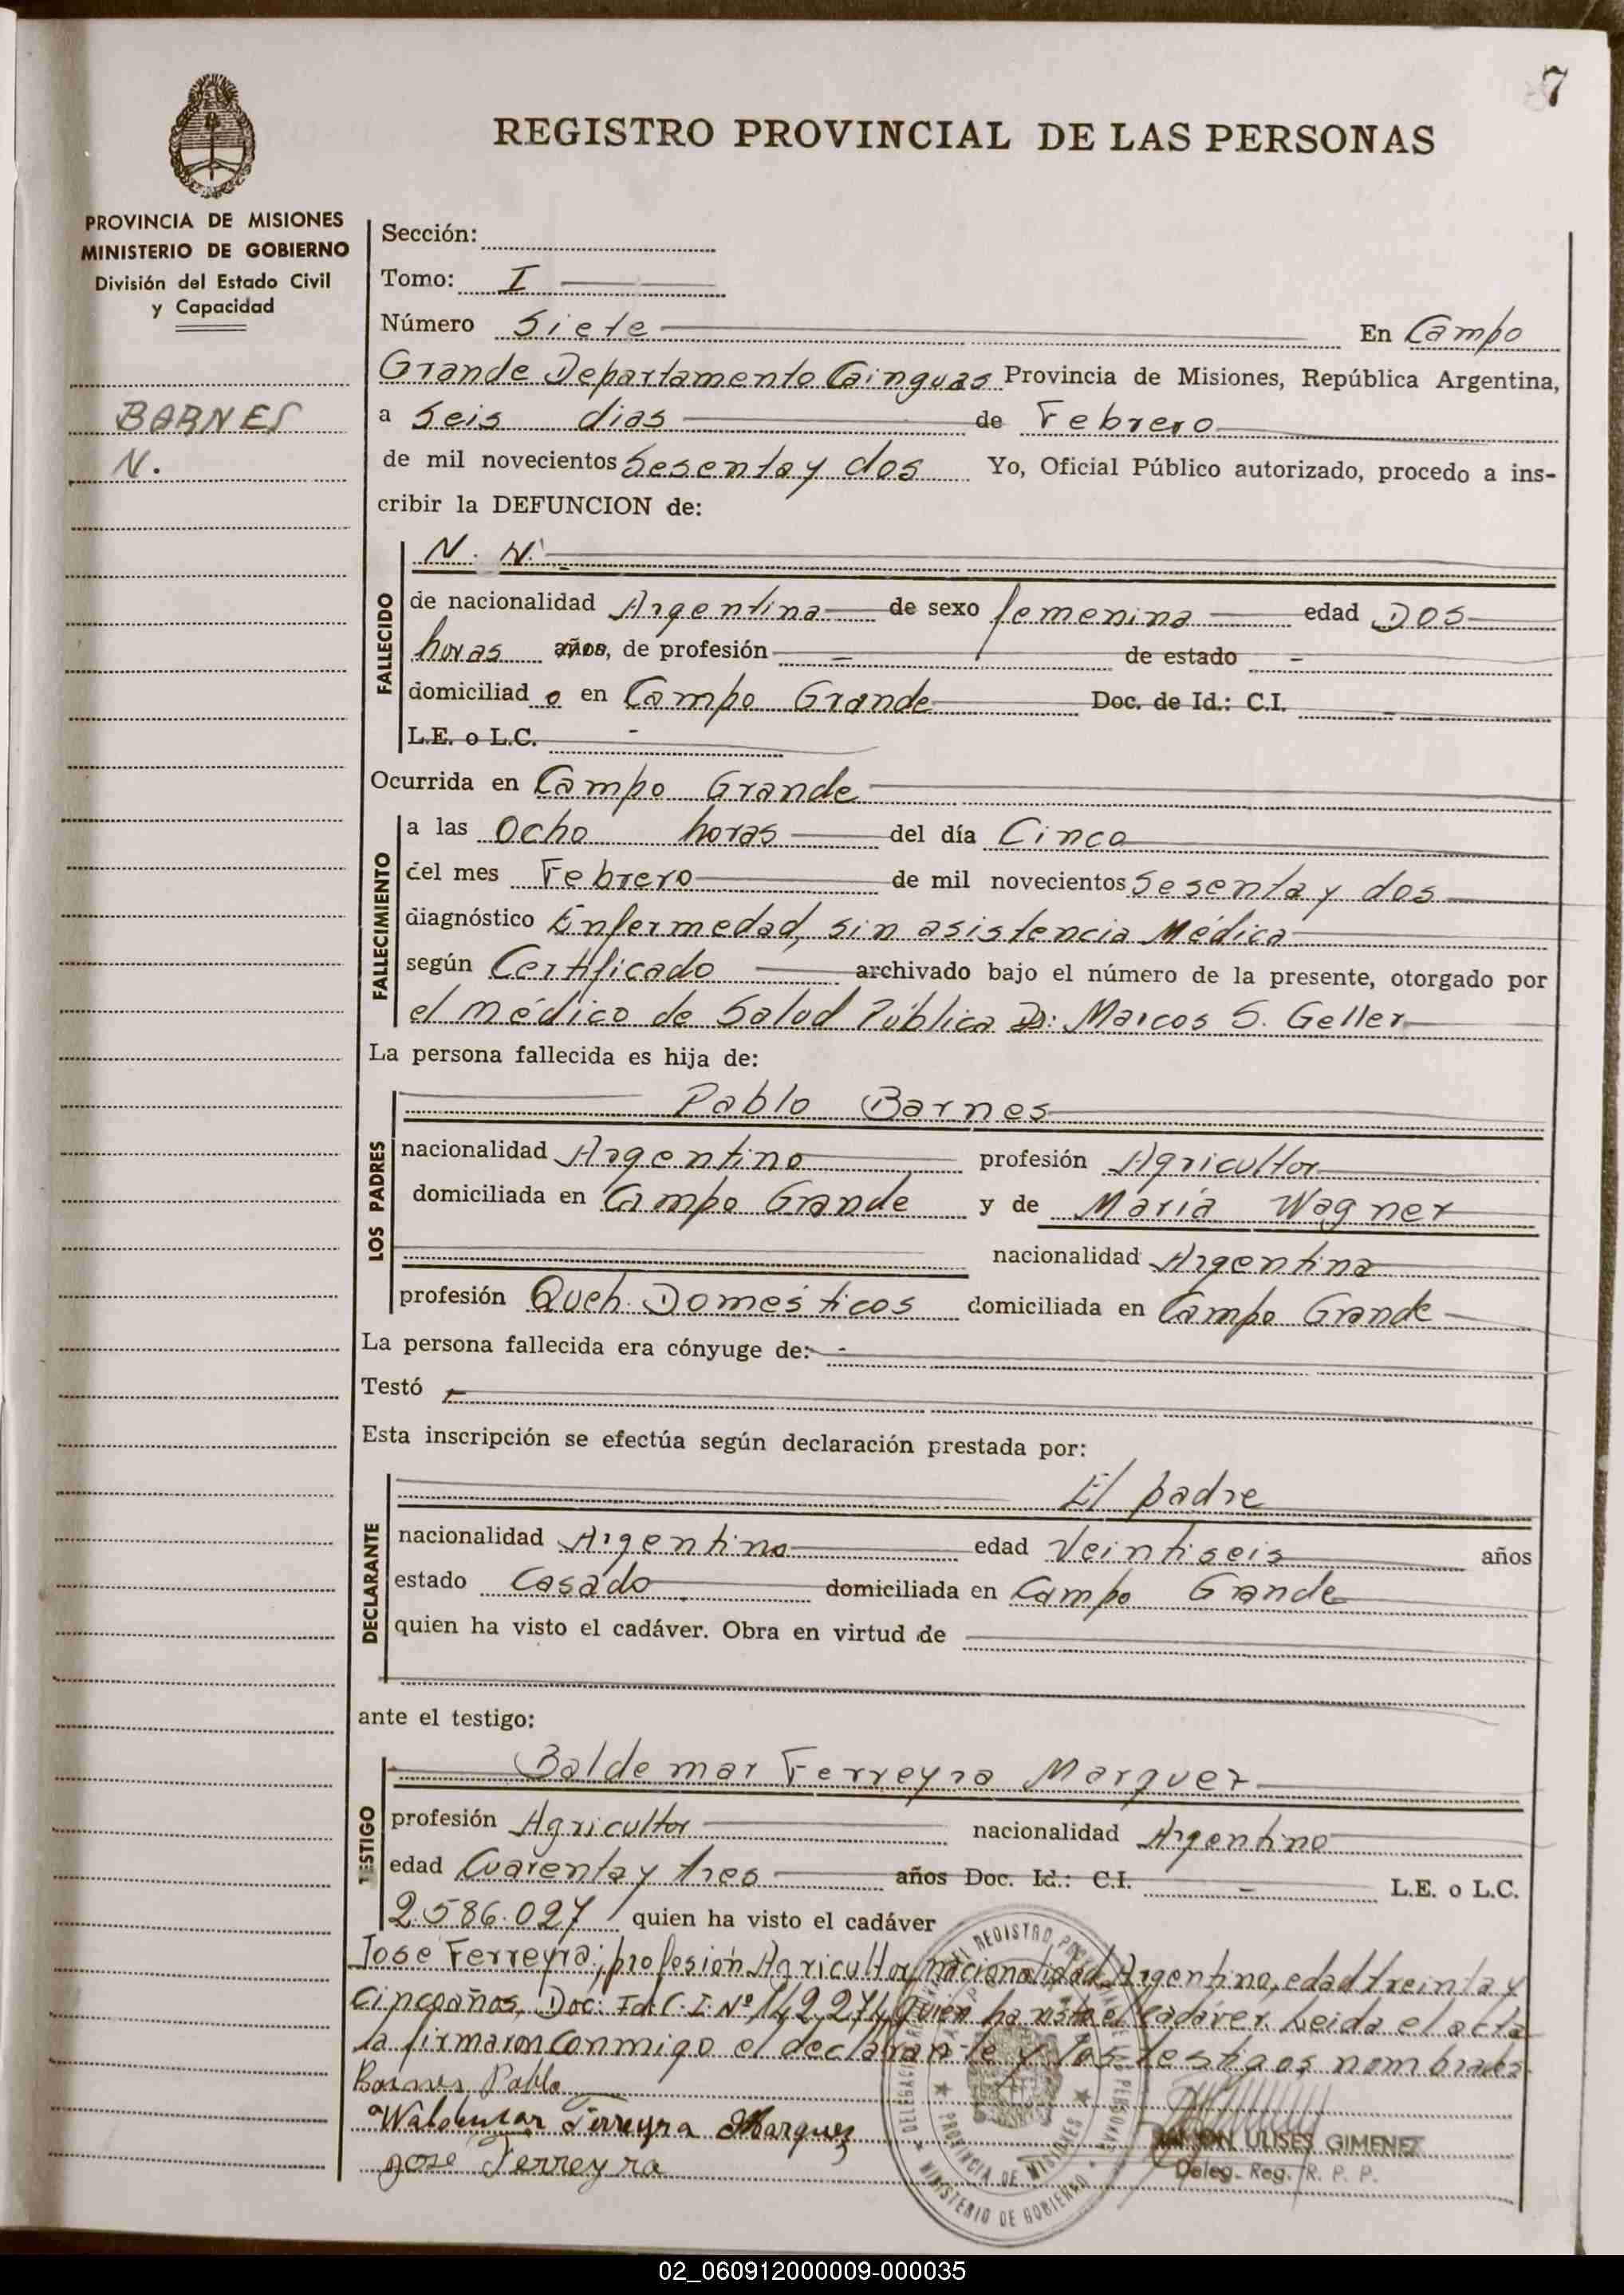 7
REGISTRO PROVINCIAL DE LAS PERSONAS
PROVINCIA DE MISIONES
MINISTERIO DE GOBIERNO
División del Estado Civil
y Capacidad
BARNES
N.
Sección:
Tomo: I
Número Siete En Campo
Grande Departamento Cainguas Provincia de Misiones, República Argentina,
a Seis dias de Febrero
de mil novecientos Sesenta y dos Yo, Oficial Público autorizado, procedo a ins-
cribir la DEFUNCION de:
FALLECIDO
N. N.
de nacionalidad Argentina de sexo femenina edad Dos
horas años, de profesión - de estado -
domiciliado en Campo Grande Doc. de Id.: C.I. -
L.E. o L.C. -
Ocurrida en Campo Grande
FALLECIMIENTO
a las Ocho horas del día Cinco
del mes Febrero de mil novecientos Sesenta y dos
diagnóstico Enfermedad, sin asistencia Médica
según Certificado archivado bajo el número de la presente, otorgado por
el médico de Salud Pública Dr: Marcos S. Geller
La persona fallecida es hija de:
LOS PADRES
Pablo Barnes
nacionalidad Argentino profesión Agricultor
domiciliada en Campo Grande y de María Wagner
nacionalidad Argentina
profesión Queh. Domésticos domiciliada en Campo Grande
La persona fallecida era cónyuge de: -
Testó -
Esta inscripción se efectúa según declaración prestada por:
DECLARANTE
El padre
nacionalidad Argentino edad Veintiseis años
estado Casado domiciliada en Campo Grande
quien ha visto el cadáver. Obra en virtud de
ante el testigo:
TESTIGO
Baldemar Ferreyra Marquez
profesión Agricultor nacionalidad Argentino
edad Cuarenta y tres años Doc. Id.: C.I. - L.E. o L.C.
2.586.027 quien ha visto el cadáver
Jose Ferreyra; profesión Agricultor, nacionalidad Argentino, edad treinta y
cinco años, Doc. Id. C.I. Nº 142,274, quien ha visto el cadáver. Leida el acta
la firmaron conmigo el declarante y los testigos nombrados
Barnes Pablo
Waldemar Ferreyra Marquez
Jose Ferreyra
RAMON ULISES GIMENEZ
Deleg. Reg. R. P. P.
MINISTERIO DE GOBIERNO
PROVINCIA DE MISIONES
02_060912000009-000035